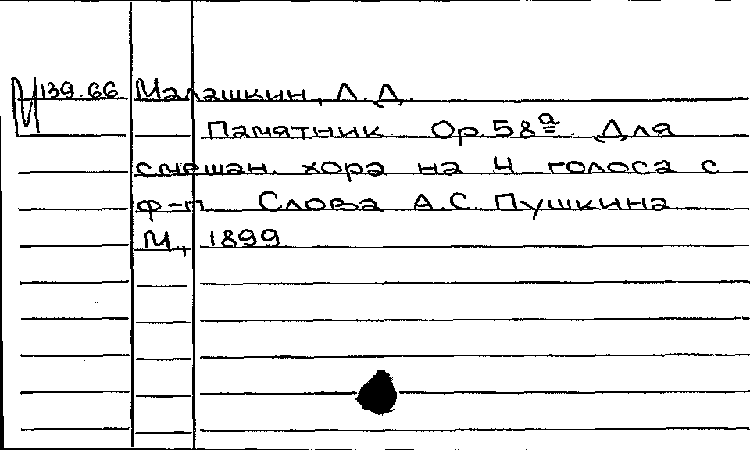 М 139.66 Малашкин, Л.Д.
Памятник Ор.58а Для
смешан. хора на 4 голоса с
ф-п. Слова А.С. Пушкина
М., 1899